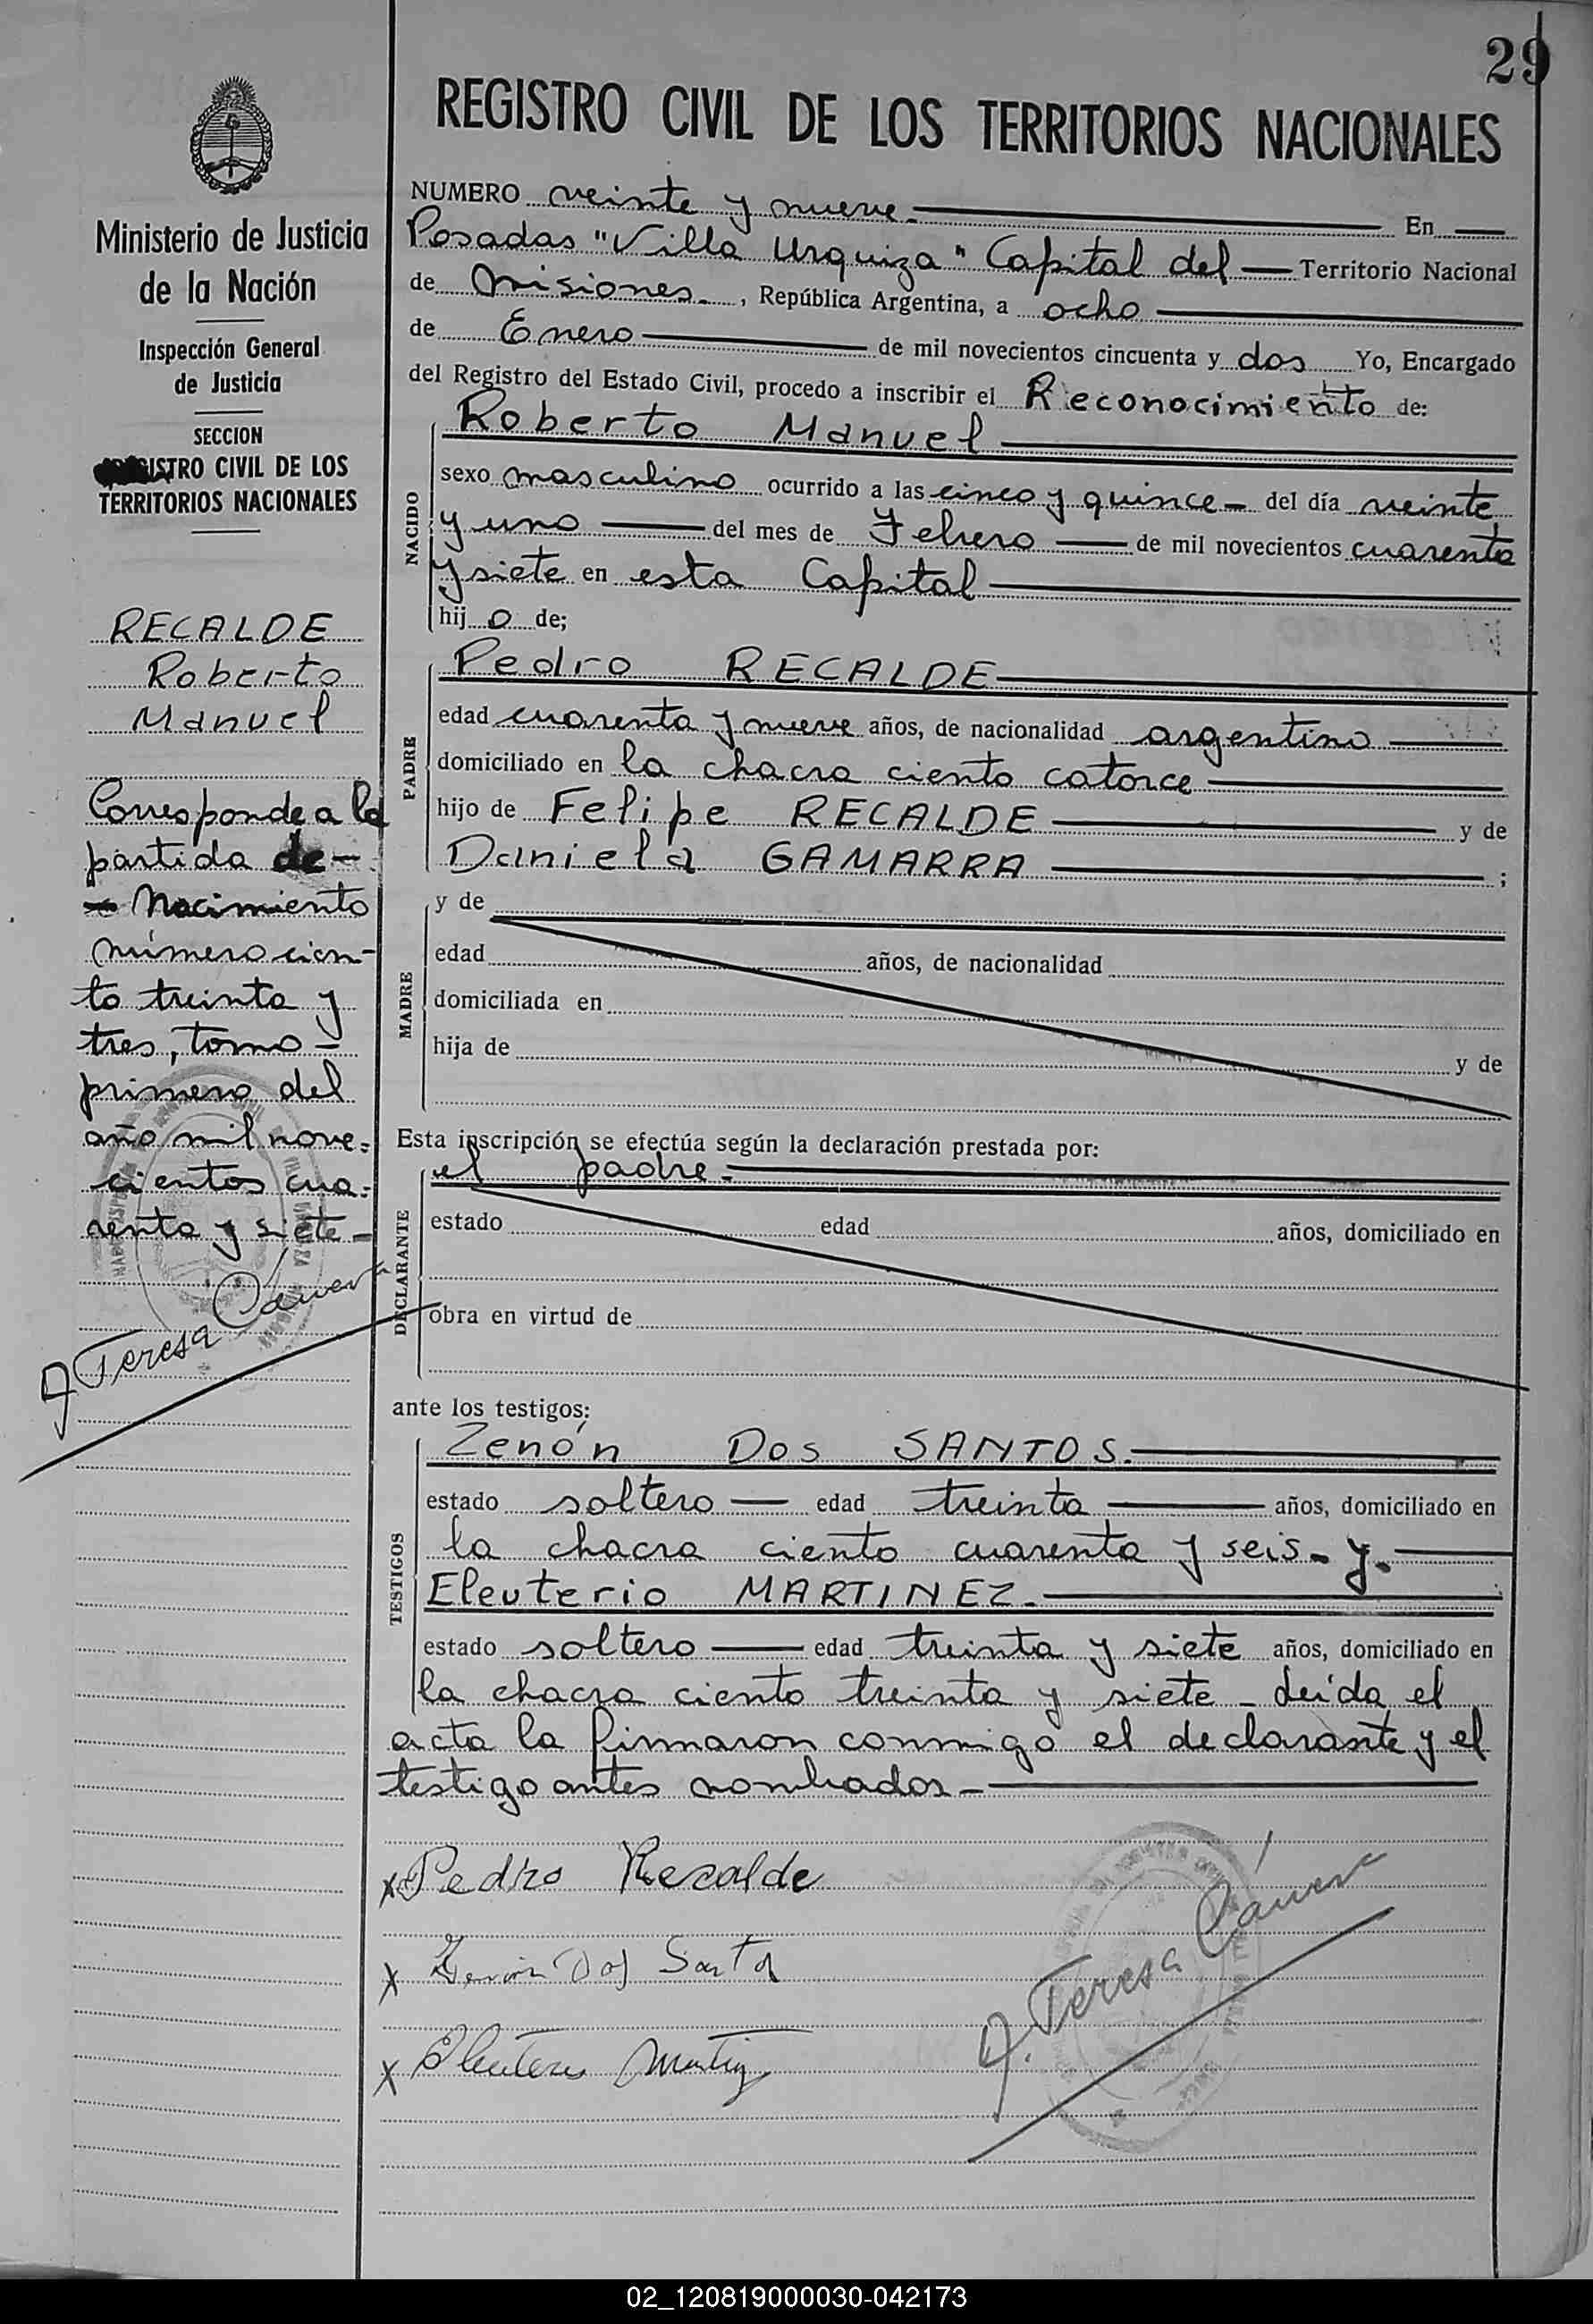 29
REGISTRO CIVIL DE LOS TERRITORIOS NACIONALES
Ministerio de Justicia
de la Nación
Inspección General
de Justicia
SECCION
REGISTRO CIVIL DE LOS
TERRITORIOS NACIONALES
RECALDE
Roberto
Manuel
Corresponde a la
partida de -
Nacimiento
número cien-
to treinta y
tres, tomo -
primero del
año mil nove-
cientos cua-
renta y siete -
NUMERO veinte y nueve. En
Posadas "Villa Urquiza" Capital del Territorio Nacional
de Misiones., República Argentina, a ocho
de Enero de mil novecientos cincuenta y dos Yo, Encargado
del Registro del Estado Civil, procedo a inscribir el Reconocimiento de:
NACIDO
Roberto Manuel
sexo masculino ocurrido a las cinco y quince - del día veinte
y uno del mes de Febrero de mil novecientos cuarenta
y siete en esta Capital
hij o de;
PADRE
Pedro RECALDE
edad cuarenta y nueve años, de nacionalidad argentino
domiciliado en la chacra ciento catorce
hijo de Felipe RECALDE y de
Daniela GAMARRA ;
MADRE
y de
edad años, de nacionalidad
domiciliada en
hija de y de
Esta inscripción se efectúa según la declaración prestada por:
DECLARANTE
el padre -
estado edad años, domiciliado en
obra en virtud de
ante los testigos:
TESTIGOS
Zenón Dos SANTOS.
estado soltero edad treinta años, domiciliado en
la chacra ciento cuarenta y seis - y.
Eleuterio MARTINEZ.
estado soltero edad treinta y siete años, domiciliado en
la chacra ciento treinta y siete - Leída el
acta la firmaron conmigo el declarante y el
testigo antes nombrados -
x Pedro Recalde
x Zenón Dos Santos
x Eleuterio Martinez
02_120819000030-042173